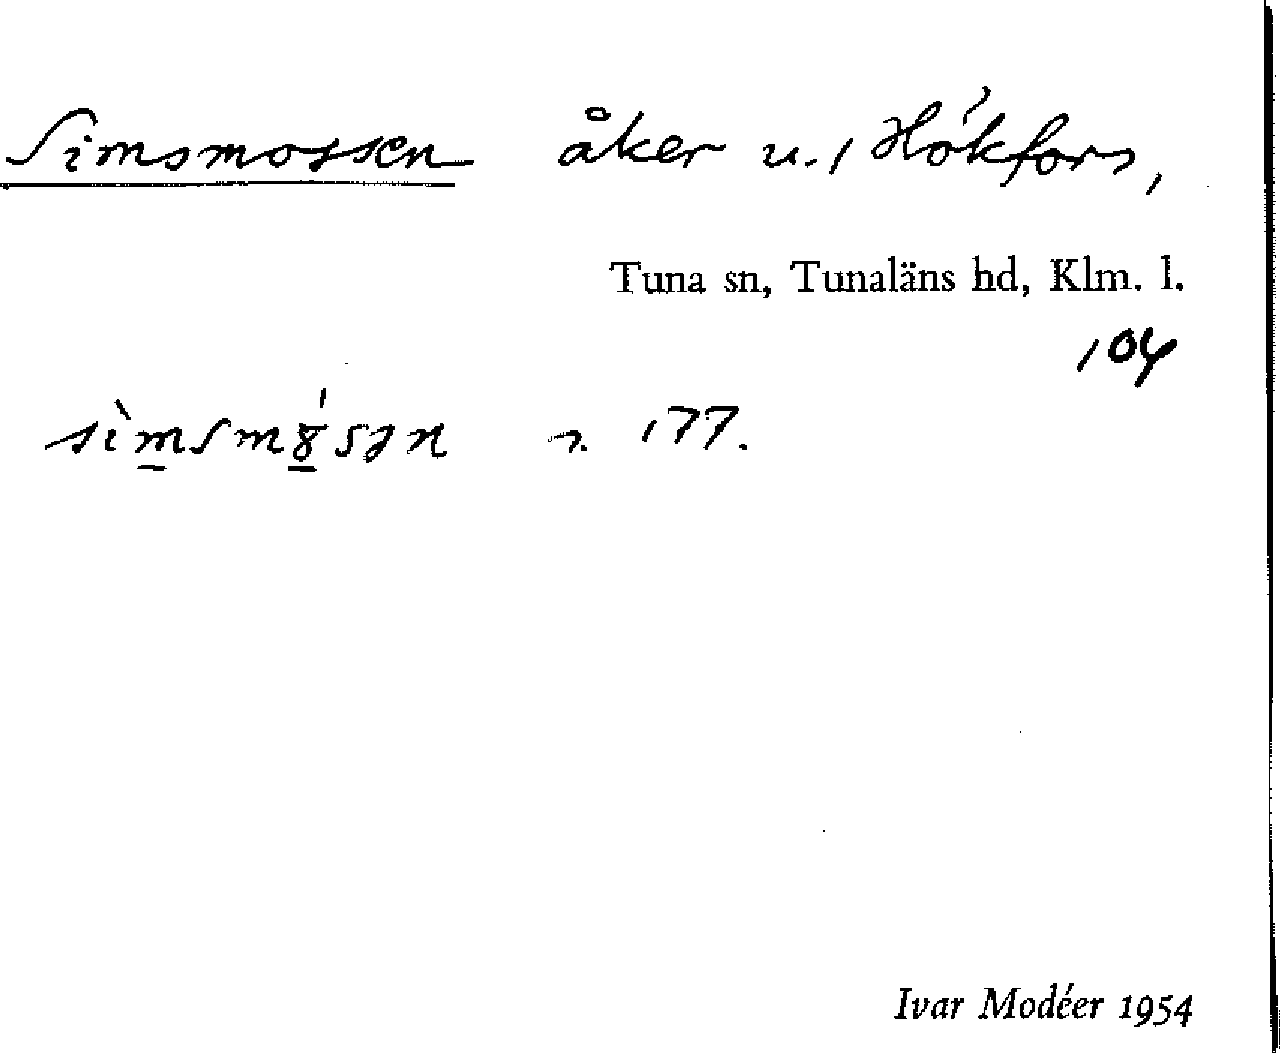 Simsmossen åker u./ Hökfors,
Tuna sn, Tunaläns hd, Klm. l.
104
177.
Ivar Modéer 1954